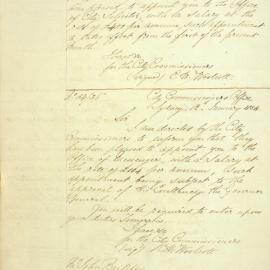 been pleased to appoint you to the Office
of City Inspector, with the Salary at the
rate of £400 per annum, such appointment
to take effect from the first of the present
month.
I have &c
for the City Commissioners
Signed /
City Commissioners Office
Sydney 12 January 1854
Sir
I am directed by the City
Commissioners to inform you that they
have been pleased to appoint you to the
Office of Messenger, with a Salary at
the rate of per annum, such
appointment being subject to the
approval of His Excellency the Governor
General.
You will be required to enter upon
your duties
I have &c
for the City Commissioners
John